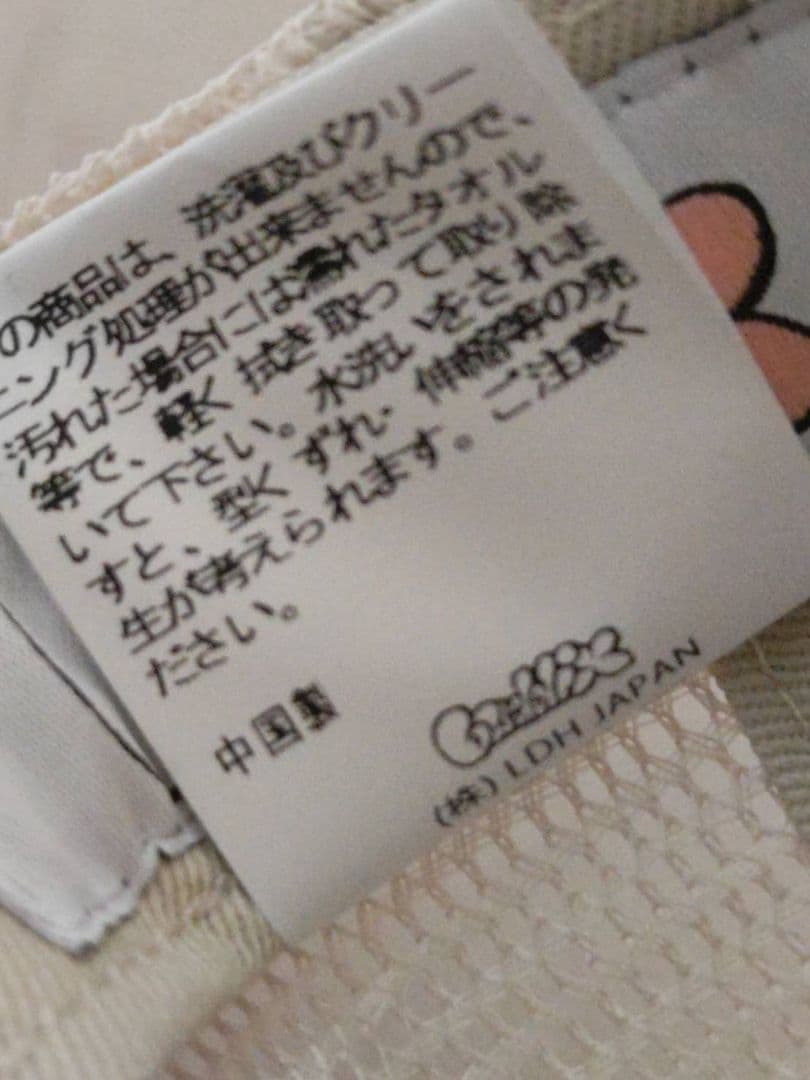 の商品は、洗濯及びクリー
ニング処理が出来ませんので、
汚れた場合には濡れたタオル
等で、軽く拭き取って取り除
いて下さい。水洗いをされま
すと、型くずれ・伸縮等の発
生が考えられます。ご注意く
ださい。
中国製
(株) LDH JAPAN